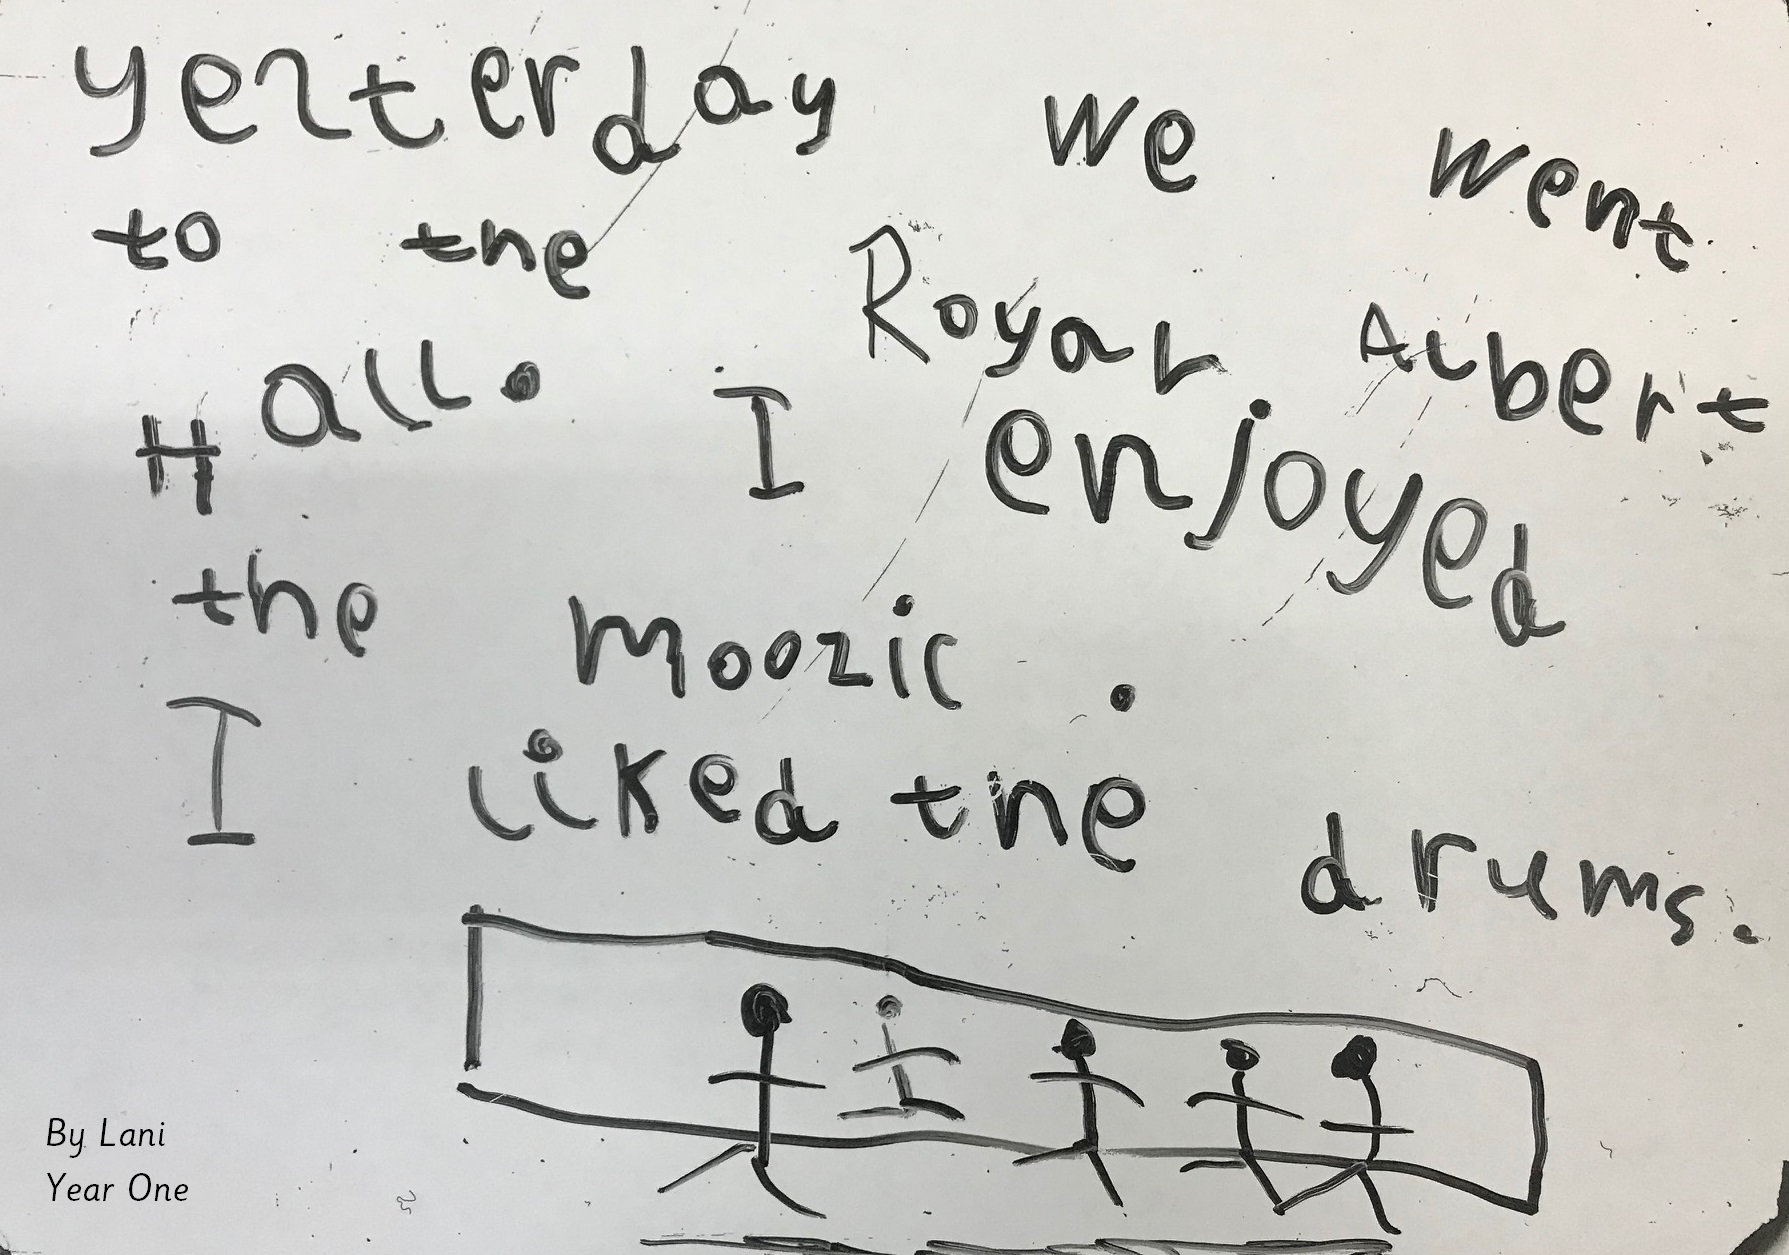 yezterday we went
to the Royal Albert
Hall. I enjoyed
the moozic.
I liked the drums.
By Lani
Year One